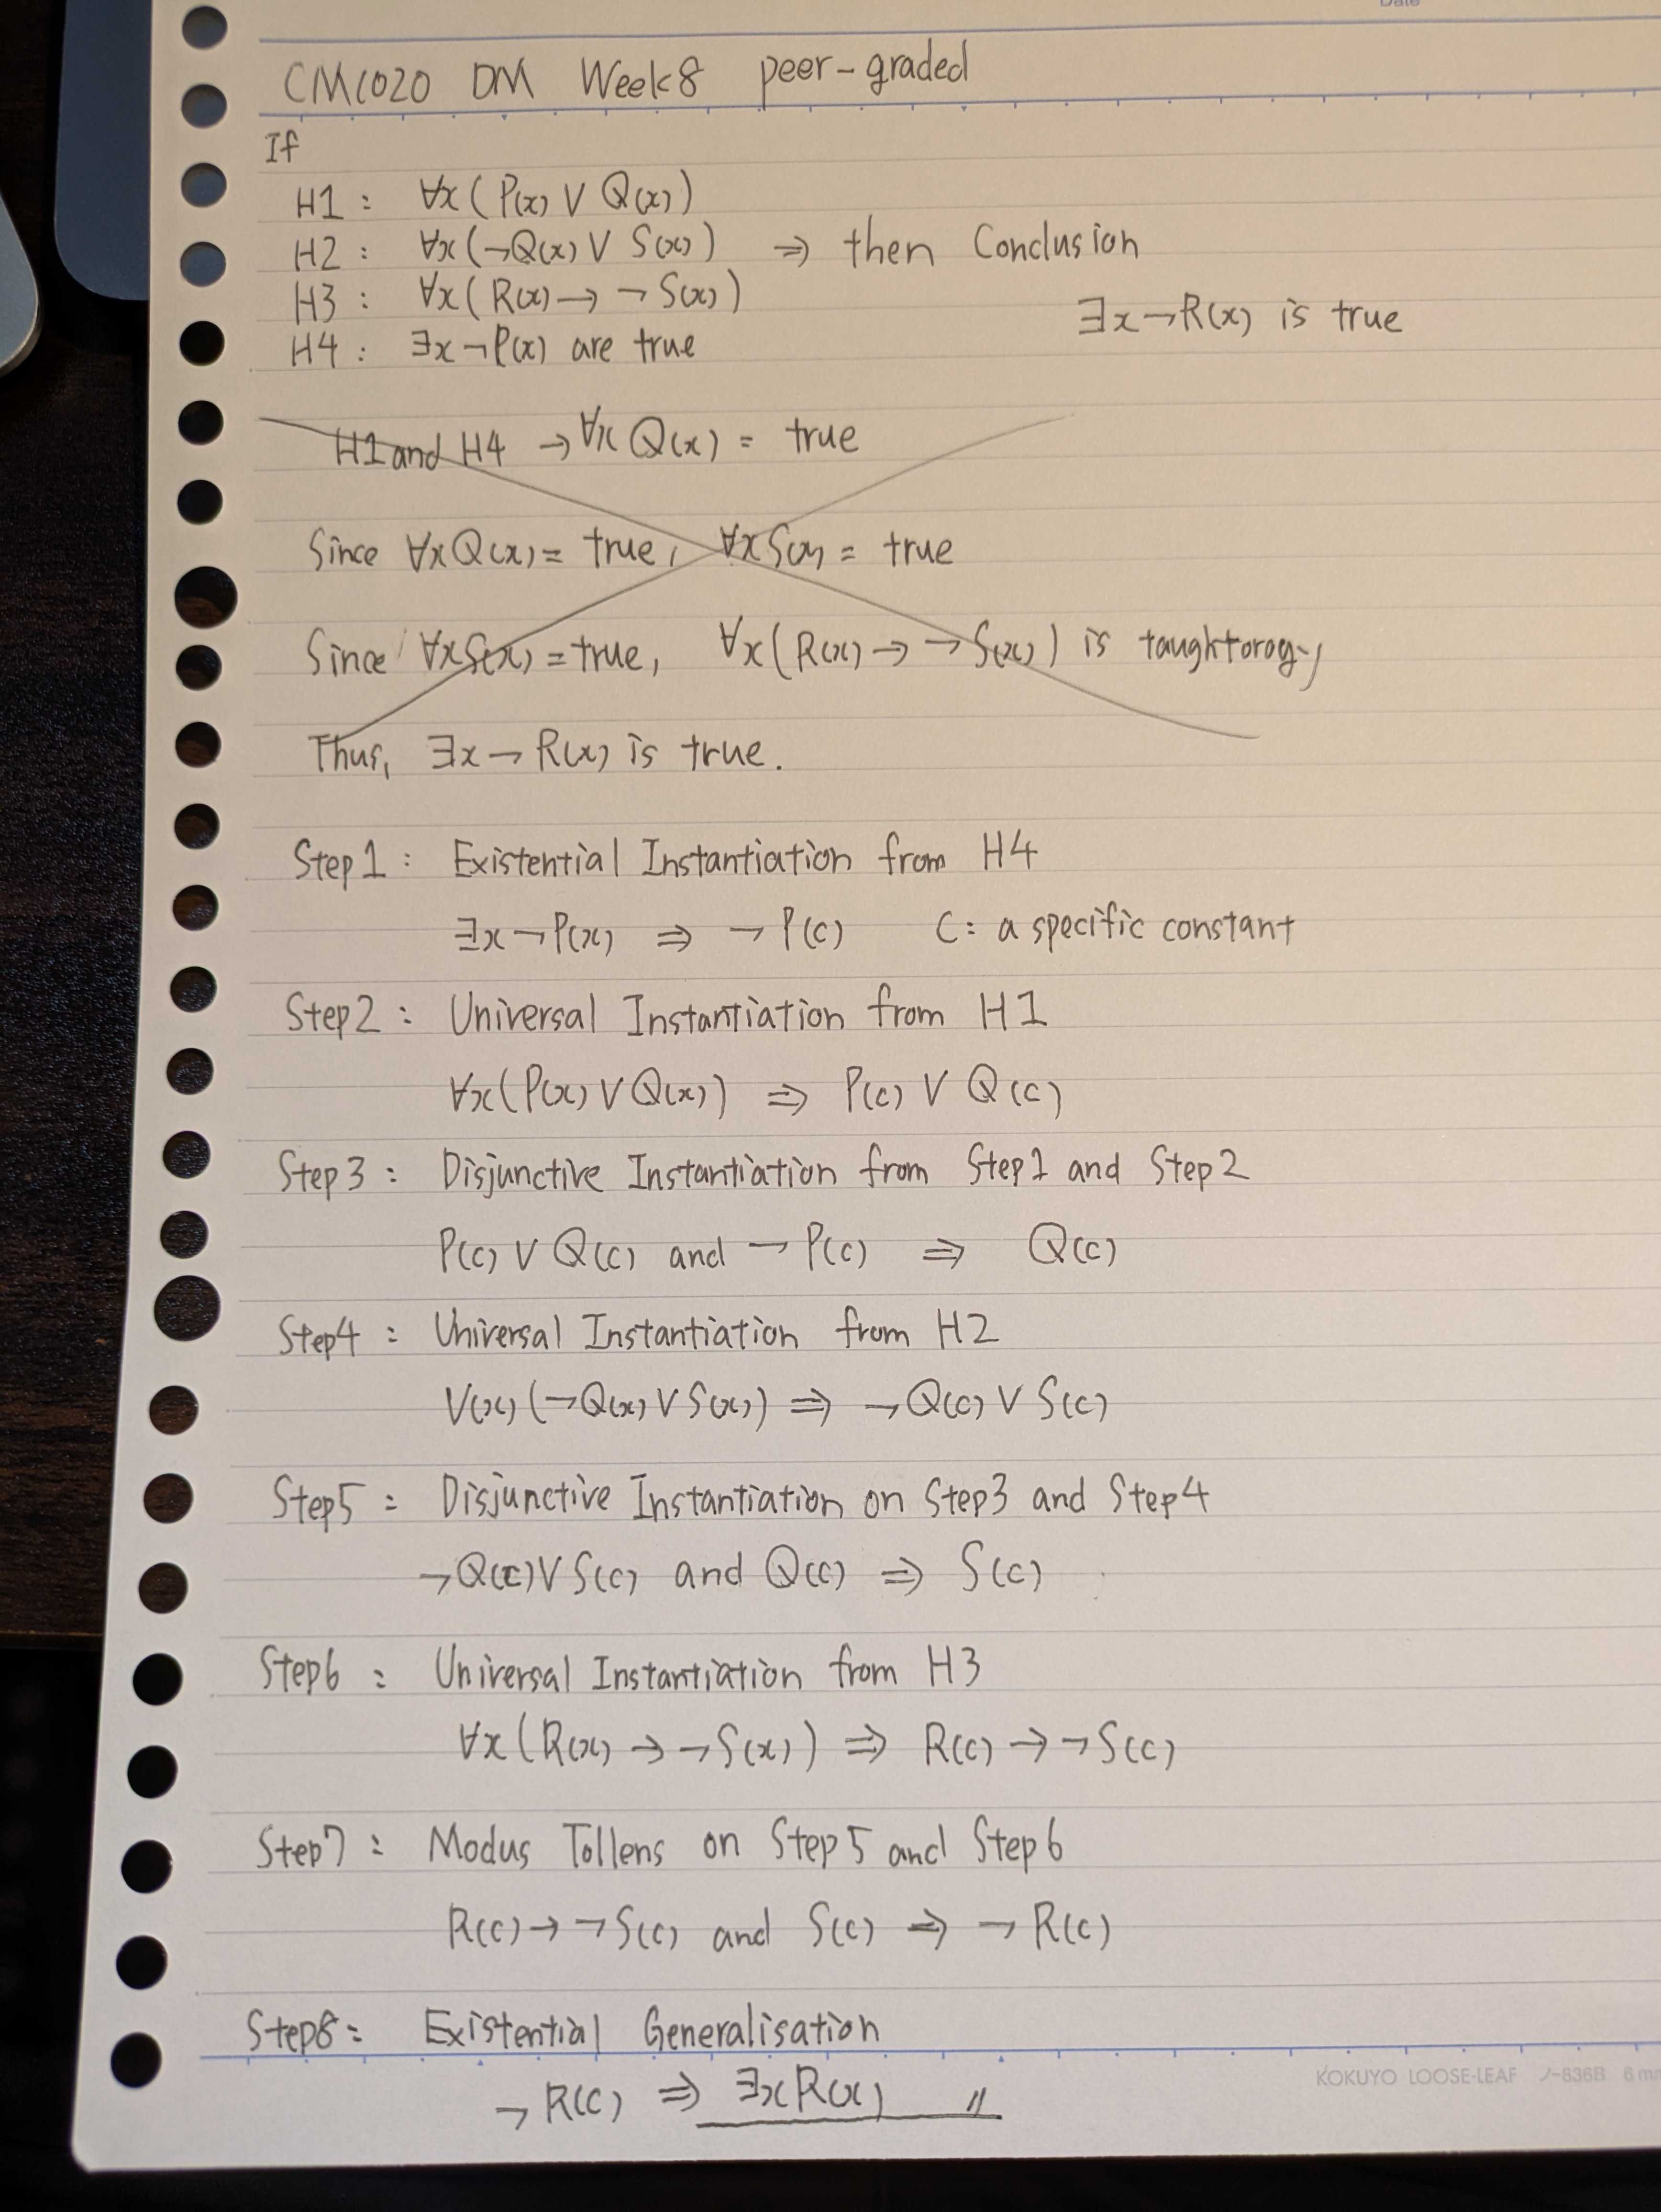 Date
CM1020 DM Week8 peer-graded
If
H1 : ∀x(P(x) ∨ Q(x))
H2 : ∀x(¬Q(x) ∨ S(x)) ⇒ then Conclusion
H3 : ∀x(R(x) → ¬S(x))
∃x¬R(x) is true
H4 : ∃x¬P(x) are true
H1 and H4 → ∀x Q(x) = true
Since ∀xQ(x) = true, ∀xS(x) = true
Since ∀xS(x) = true, ∀x(R(x) → ¬S(x)) is taughtorogy
Thus, ∃x¬R(x) is true.
Step1 : Existential Instantiation from H4
∃x¬P(x) ⇒ ¬P(c) C : a specific constant
Step2 : Universal Instantiation from H1
∀x(P(x) ∨ Q(x)) ⇒ P(c) ∨ Q(c)
Step3 : Disjunctive Instantiation from Step1 and Step2
P(c) ∨ Q(c) and ¬P(c) ⇒ Q(c)
Step4 : Universal Instantiation from H2
V(x)(¬Q(x) ∨ S(x)) ⇒ ¬Q(c) ∨ S(c)
Step5 : Disjunctive Instantiation on Step3 and Step4
¬Q(c) ∨ S(c) and Q(c) ⇒ S(c)
Step6 : Universal Instantiation from H3
∀x(R(x) → ¬S(x)) ⇒ R(c) → ¬S(c)
Step7 : Modus Tollens on Step5 and Step6
R(c) → ¬S(c) and S(c) ⇒ ¬R(c)
Step8 : Existential Generalisation
KOKUYO LOOSE-LEAF ノ-836B 6mm
¬R(c) ⇒ ∃xR(x) 〃